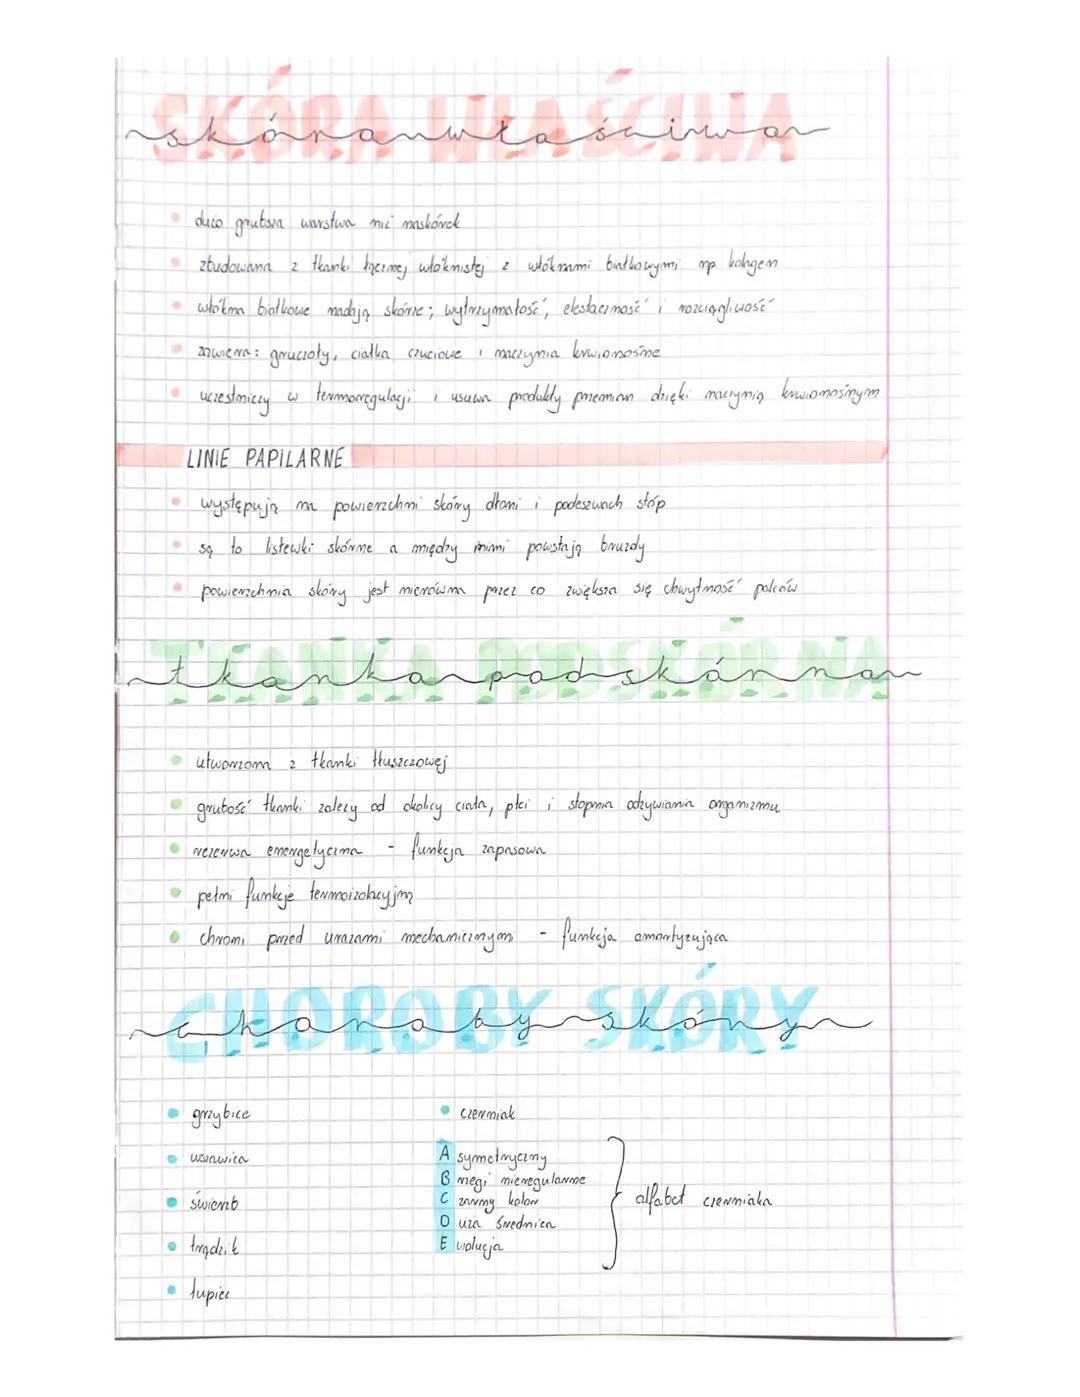 SKÓRA WŁAŚCIWA
skóra właściwa
dużo grubsza warstwa niż naskórek
zbudowana z tkanki łącznej włóknistej z włóknami białkowymi np kolagen
włókna białkowe nadają skórze; wytrzymałość, elastaczność i rozciągliwość
zawiera: gruczoły, ciałka czuciowe i naczynia krwionośne
uczestniczy w termoregulacji i usuwa produkty przemian dzięki naczynią krwionośnym
LINIE PAPILARNE
występują na powierzchni skóry dłoni i podeszwach stóp
są to listewki skórne a między nimi powstają bruzdy
powierzchnia skóry jest nierówna przez co zwiększa się chwytność palców
TKANKA PODSKÓRNA
tkanka podskórna
utworzona z tkanki tłuszczowej
grubość tkanki zależy od okolicy ciała, płci i stopnia odżywiania organizmu
rezerwa energetyczna - funkcja zapasowa
pełni funkcje termoizolacyjną
chroni przed urazami mechanicznymi - funkcja amortyzująca
CHOROBY SKÓRY
choroby skóry
grzybice
wszawica
świerzb
trądzik
łupież
czerniak
A symetryczny
B rzegi nieregularne
C zarny kolor
D uża średnica
E wolucja
alfabet czerniaka